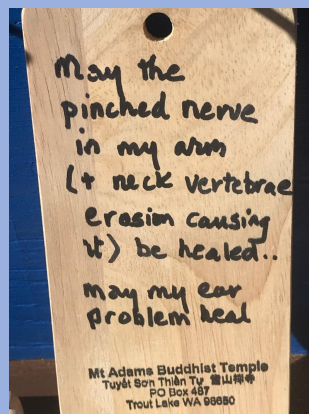 May the
pinched nerve
in my arm
(+ neck vertebrae
erosion causing
it) be healed..
may my ear
problem heal
Mt Adams Buddhist Temple
Tuyết Sơn Thiền Tự 雪山禅寺
PO Box 487
Trout Lake WA 98650